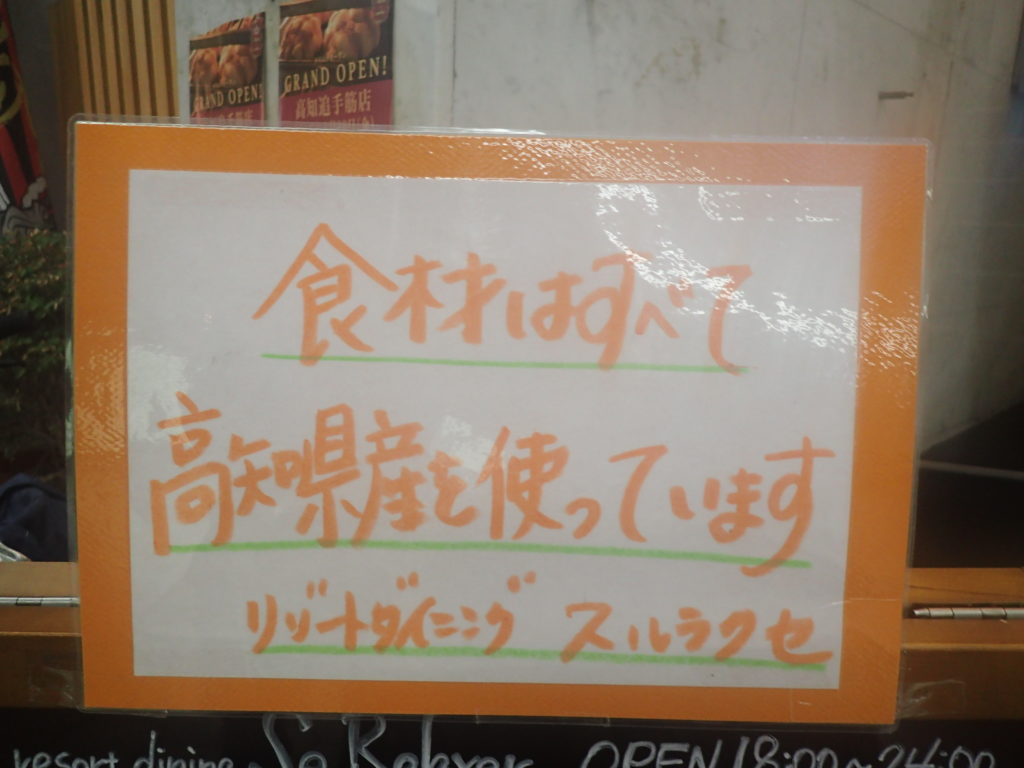 GRAND OPEN!
GRAND OPEN!
高知追手筋店
食材はすべて
高知県産を使っています
リゾートダイニング スルラクセ
resort dining Se Relaxer OPEN 18:00~24:00